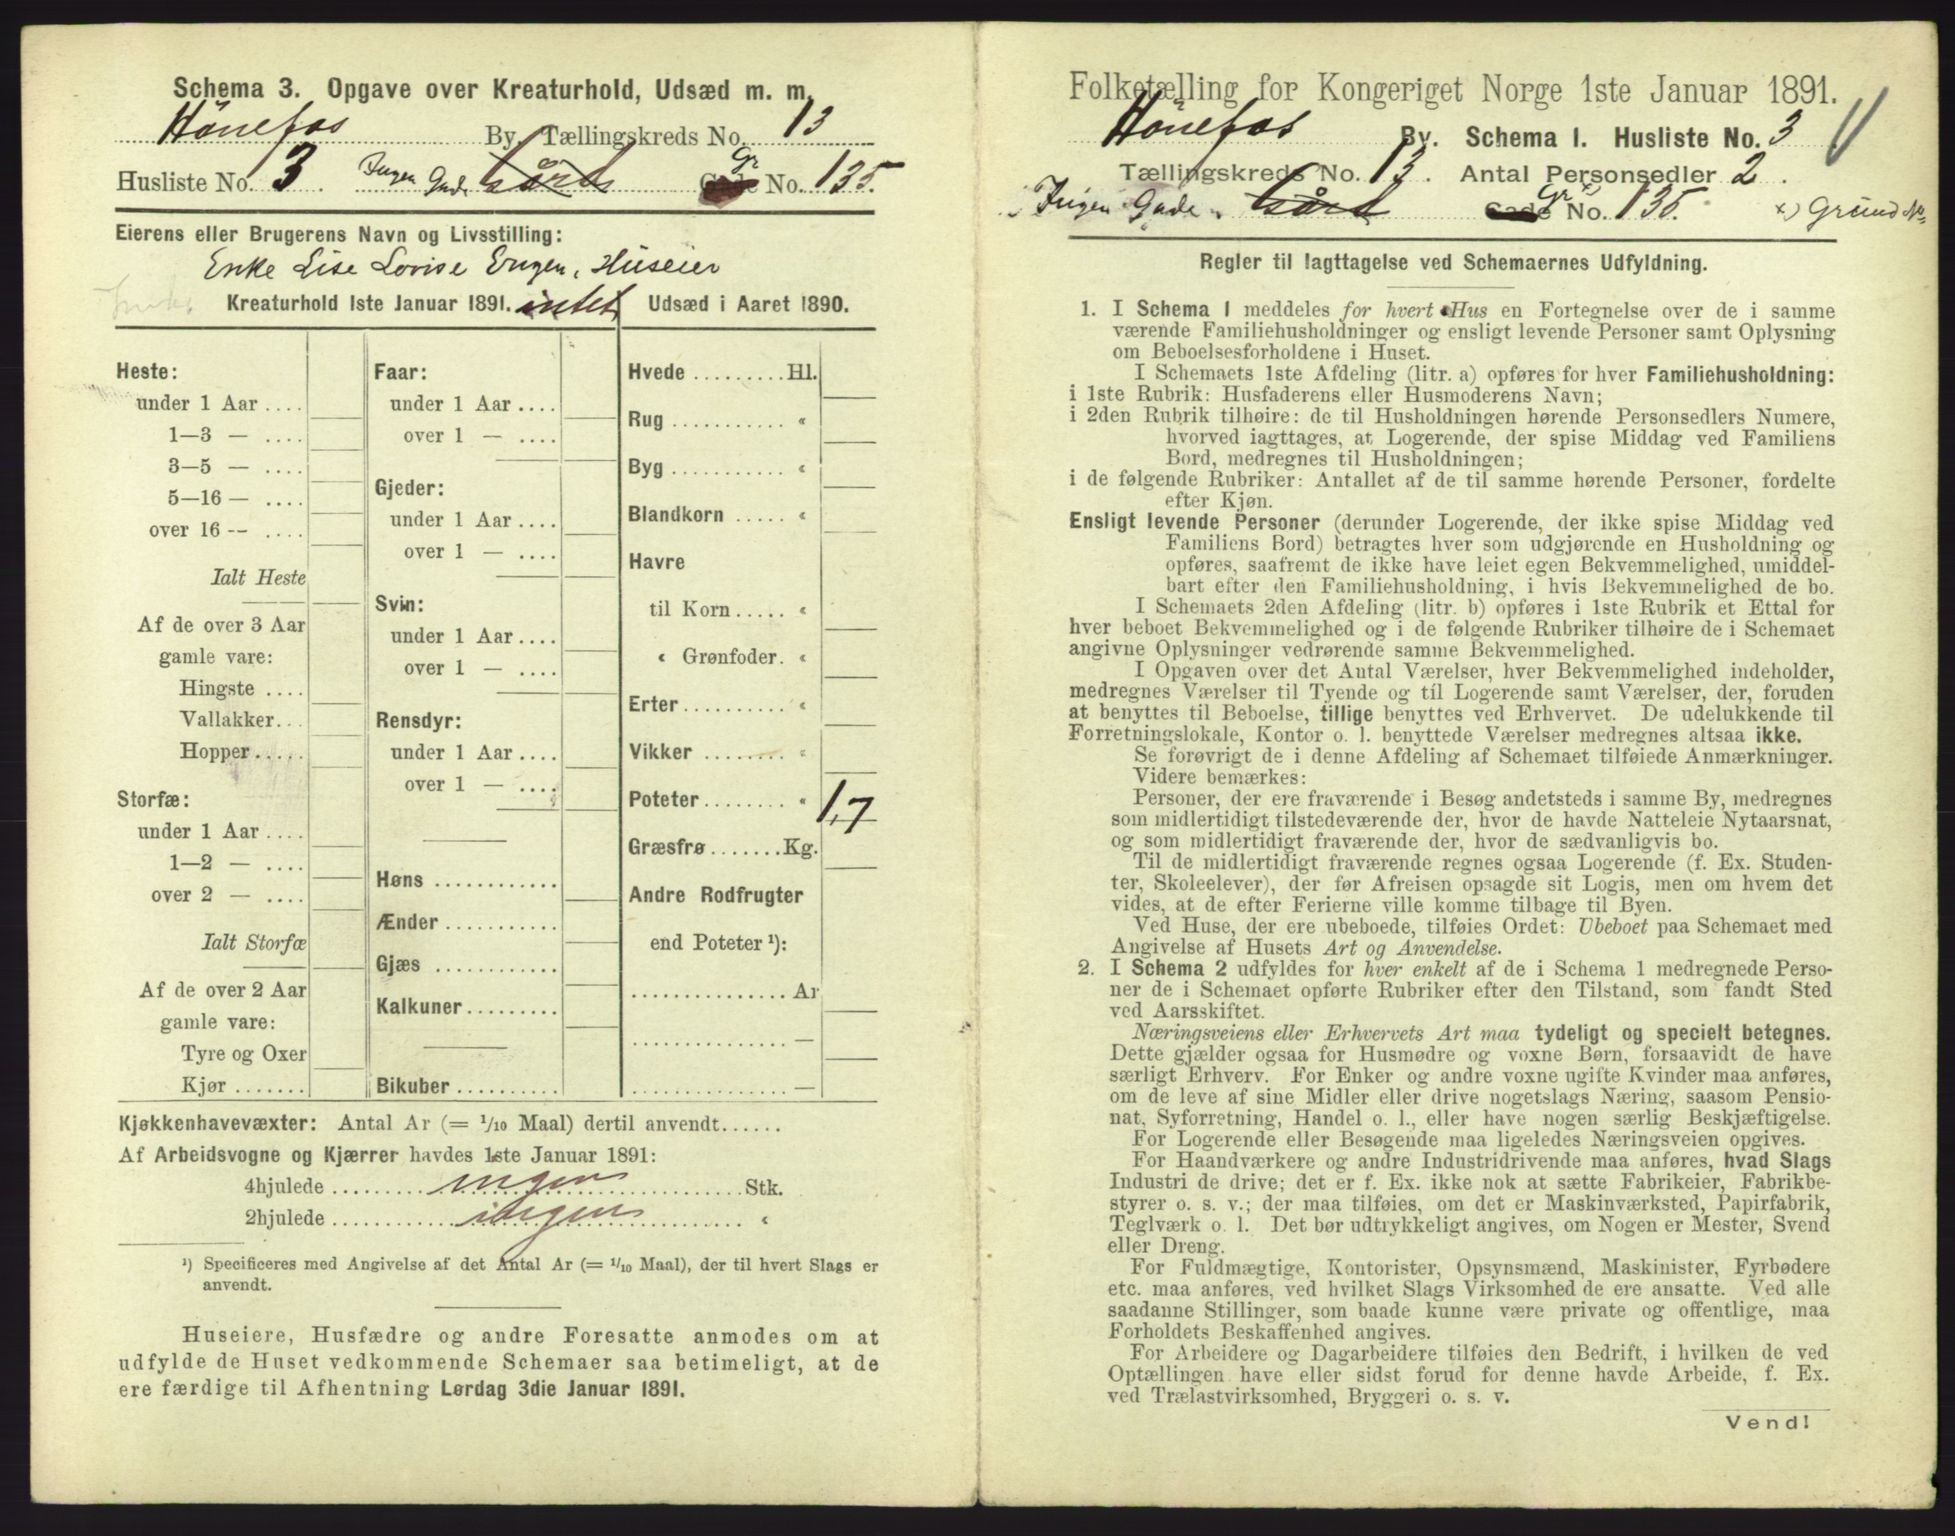 Schema 3. Opgave over Kreaturhold, Udsæd m. m.
Hönefos By, Tællingskreds No. 13
Husliste No. 3 Ingen Gade Gr No. 135.
Eierens eller Brugerens Navn og Livsstilling:
Enke Lise Lovise Engen, Huseier
Kreaturhold 1ste Januar 1891. intet Udsæd i Aaret 1890.
Heste:
under 1 Aar ....
1—3 — ....
3—5 — ....
5—16 — ....
over 16 — ....
Ialt Heste
Af de over 3 Aar
gamle vare:
Hingste ....
Vallakker...
Hopper.....
Storfæ:
under 1 Aar ....
1—2 — ....
over 2 — ....
Ialt Storfæ
Af de over 2 Aar
gamle vare:
Tyre og Oxer
Kjør .......
Faar:
under 1 Aar ....
over 1 — ....
Gjeder:
under 1 Aar ....
over 1 — ....
Svin:
under 1 Aar ....
over 1 — ....
Rensdyr:
under 1 Aar ....
over 1 — ....
Høns ............
Ænder ...........
Gjæs ............
Kalkuner.........
Bikuber ..........
Hvede .........Hl.
Rug ........... «
Byg ........... «
Blandkorn ..... «
Havre
til Korn..... «
« Grønfoder. «
Erter.......... «
Vikker ........ «
Poteter........ « 1,7
Græsfrø.......Kg.
Andre Rodfrugter
end Poteter ¹):
............... Ar
............... —
............... —
Kjøkkenhavevæxter: Antal Ar (= 1/10 Maal) dertil anvendt......
Af Arbeidsvogne og Kjærrer havdes 1ste Januar 1891:
4hjulede ......... ingen ......... Stk.
2hjulede ......... ingen ......... «
¹) Specificeres med Angivelse af det Antal Ar (= 1/10 Maal), der til hvert Slags er
anvendt.
Huseiere, Husfædre og andre Foresatte anmodes om at
udfylde de Huset vedkommende Schemaer saa betimeligt, at de
ere færdige til Afhentning Lørdag 3die Januar 1891.
Folketælling for Kongeriget Norge 1ste Januar 1891.
Hönefos By. Schema I. Husliste No. 3
Tællingskreds No. 13. Antal Personsedler 2.
Ingen Gade Gr x) No. 135. x) Grund No
Regler til Iagttagelse ved Schemaernes Udfyldning.
1. I Schema I meddeles for hvert Hus en Fortegnelse over de i samme
værende Familiehusholdninger og ensligt levende Personer samt Oplysning
om Beboelsesforholdene i Huset.
I Schemaets 1ste Afdeling (litr. a) opføres for hver Familiehusholdning:
i 1ste Rubrik: Husfaderens eller Husmoderens Navn;
i 2den Rubrik tilhøire: de til Husholdningen hørende Personsedlers Numere,
hvorved iagttages, at Logerende, der spise Middag ved Familiens
Bord, medregnes til Husholdningen;
i de følgende Rubriker: Antallet af de til samme hørende Personer, fordelte
efter Kjøn.
Ensligt levende Personer (derunder Logerende, der ikke spise Middag ved
Familiens Bord) betragtes hver som udgjørende en Husholdning og
opføres, saafremt de ikke have leiet egen Bekvemmelighed, umiddel-
bart efter den Familiehusholdning, i hvis Bekvemmelighed de bo.
I Schemaets 2den Afdeling (litr. b) opføres i 1ste Rubrik et Ettal for
hver beboet Bekvemmelighed og i de følgende Rubriker tilhøire de i Schemaet
angivne Oplysninger vedrørende samme Bekvemmelighed.
I Opgaven over det Antal Værelser, hver Bekvemmelighed indeholder,
medregnes Værelser til Tyende og til Logerende samt Værelser, der, foruden
at benyttes til Beboelse, tillige benyttes ved Erhvervet. De udelukkende til
Forretningslokale, Kontor o. l. benyttede Værelser medregnes altsaa ikke.
Se forøvrigt de i denne Afdeling af Schemaet tilføiede Anmærkninger.
Videre bemærkes:
Personer, der ere fraværende i Besøg andetsteds i samme By, medregnes
som midlertidigt tilstedeværende der, hvor de havde Natteleie Nytaarsnat,
og som midlertidigt fraværende der, hvor de sædvanligvis bo.
Til de midlertidigt fraværende regnes ogsaa Logerende (f. Ex. Studen-
ter, Skoleelever), der før Afreisen opsagde sit Logis, men om hvem det
vides, at de efter Ferierne ville komme tilbage til Byen.
Ved Huse, der ere ubeboede, tilføies Ordet: Ubeboet paa Schemaet med
Angivelse af Husets Art og Anvendelse.
2. I Schema 2 udfyldes for hver enkelt af de i Schema 1 medregnede Perso-
ner de i Schemaet opførte Rubriker efter den Tilstand, som fandt Sted
ved Aarsskiftet.
Næringsveiens eller Erhvervets Art maa tydeligt og specielt betegnes.
Dette gjælder ogsaa for Husmødre og voxne Børn, forsaavidt de have
særligt Erhverv. For Enker og andre voxne ugifte Kvinder maa anføres,
om de leve af sine Midler eller drive nogetslags Næring, saasom Pensio-
nat, Syforretning, Handel o. l., eller have nogen særlig Beskjæftigelse.
For Logerende eller Besøgende maa ligeledes Næringsveien opgives.
For Haandværkere og andre Industridrivende maa anføres, hvad Slags
Industri de drive; det er f. Ex. ikke nok at sætte Fabrikeier, Fabrikbe-
styrer o. s. v.; der maa tilføies, om det er Maskinværksted, Papirfabrik,
Teglværk o. l. Det bør udtrykkeligt angives, om Nogen er Mester, Svend
eller Dreng.
For Fuldmægtige, Kontorister, Opsynsmænd, Maskinister, Fyrbødere
etc. maa anføres, ved hvilket Slags Virksomhed de ere ansatte. Ved alle
saadanne Stillinger, som baade kunne være private og offentlige, maa
Forholdets Beskaffenhed angives.
For Arbeidere og Dagarbeidere tilføies den Bedrift, i hvilken de ved
Optællingen have eller sidst forud for denne havde Arbeide, f. Ex.
ved Trælastvirksomhed, Bryggeri o. s. v.
Vend!